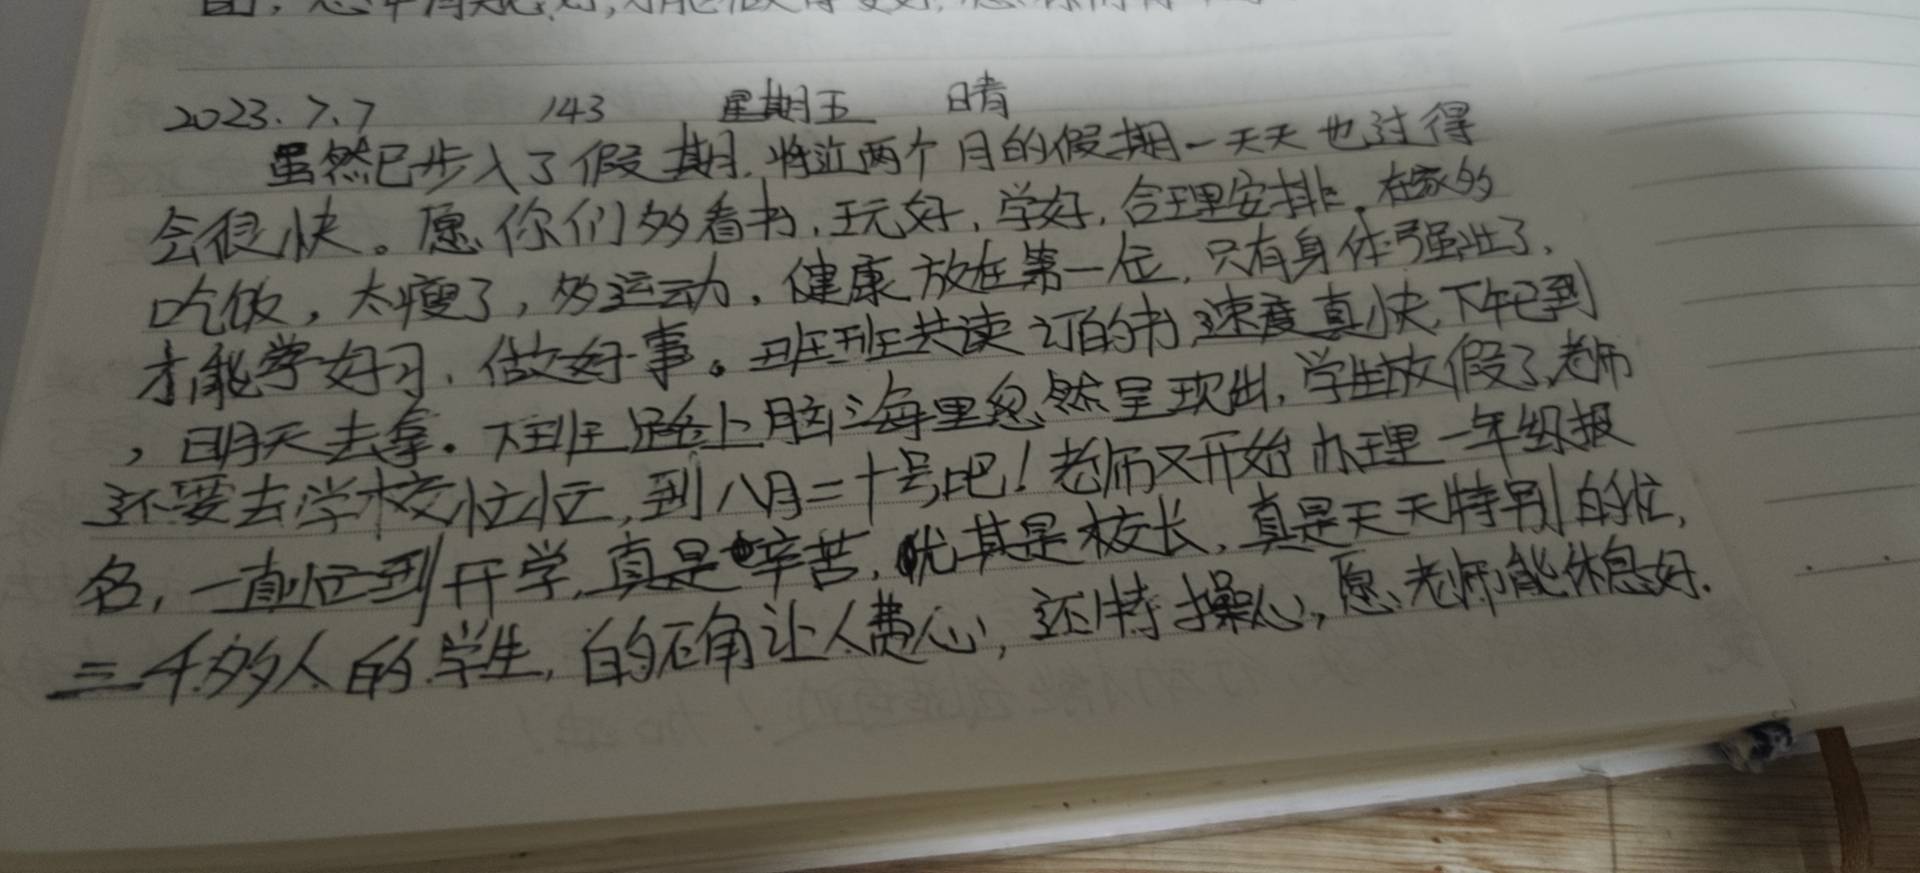 2023.7.7 143 星期五 晴
虽然已步入了假期,将近两个月的假期一天天也过得
会很快。愿你们多看书,玩好,学好,合理安排,在家多
吃饭,太瘦了,多运动,健康放在第一位,只有身体强壮了,
才能学好习,做好事。班班共读订的书速度真快,下午已到
,明天去拿。下班路上脑海里忽然呈现出,学生放假了,老师
还要去学校忙忙,到八月二十号吧!老师又开始办理一年级报
名,一直忙到开学,真是辛苦,尤其是校长,真是天天特别的忙,
三千多人的学生,的确让人费心,还特操心,愿老师能休息好.